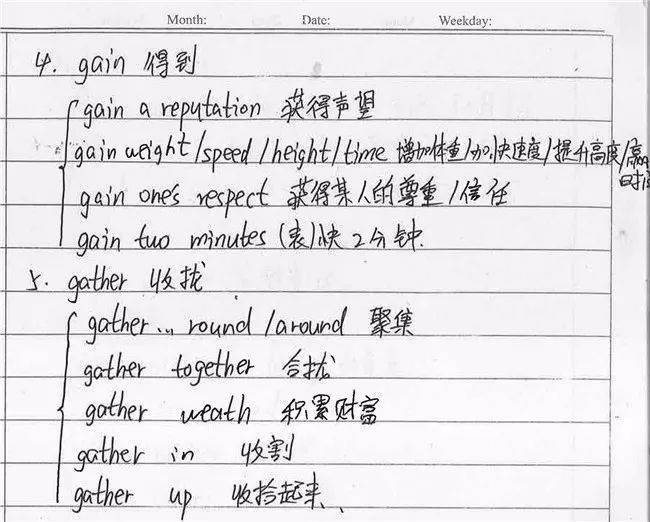 Month: Date: Weekday:
4. gain 得到
gain a reputation 获得声望
gain weight/speed/height/time 增加体重/加快速度/提升高度/
gain one's respect 获得某人的尊重/信任
gain two minutes (表)快2分钟.
5. gather 收拢
gather... round/around 聚集
gather together 合拢
gather weath 积累财富
gather in 收割
gather up 收拾起来